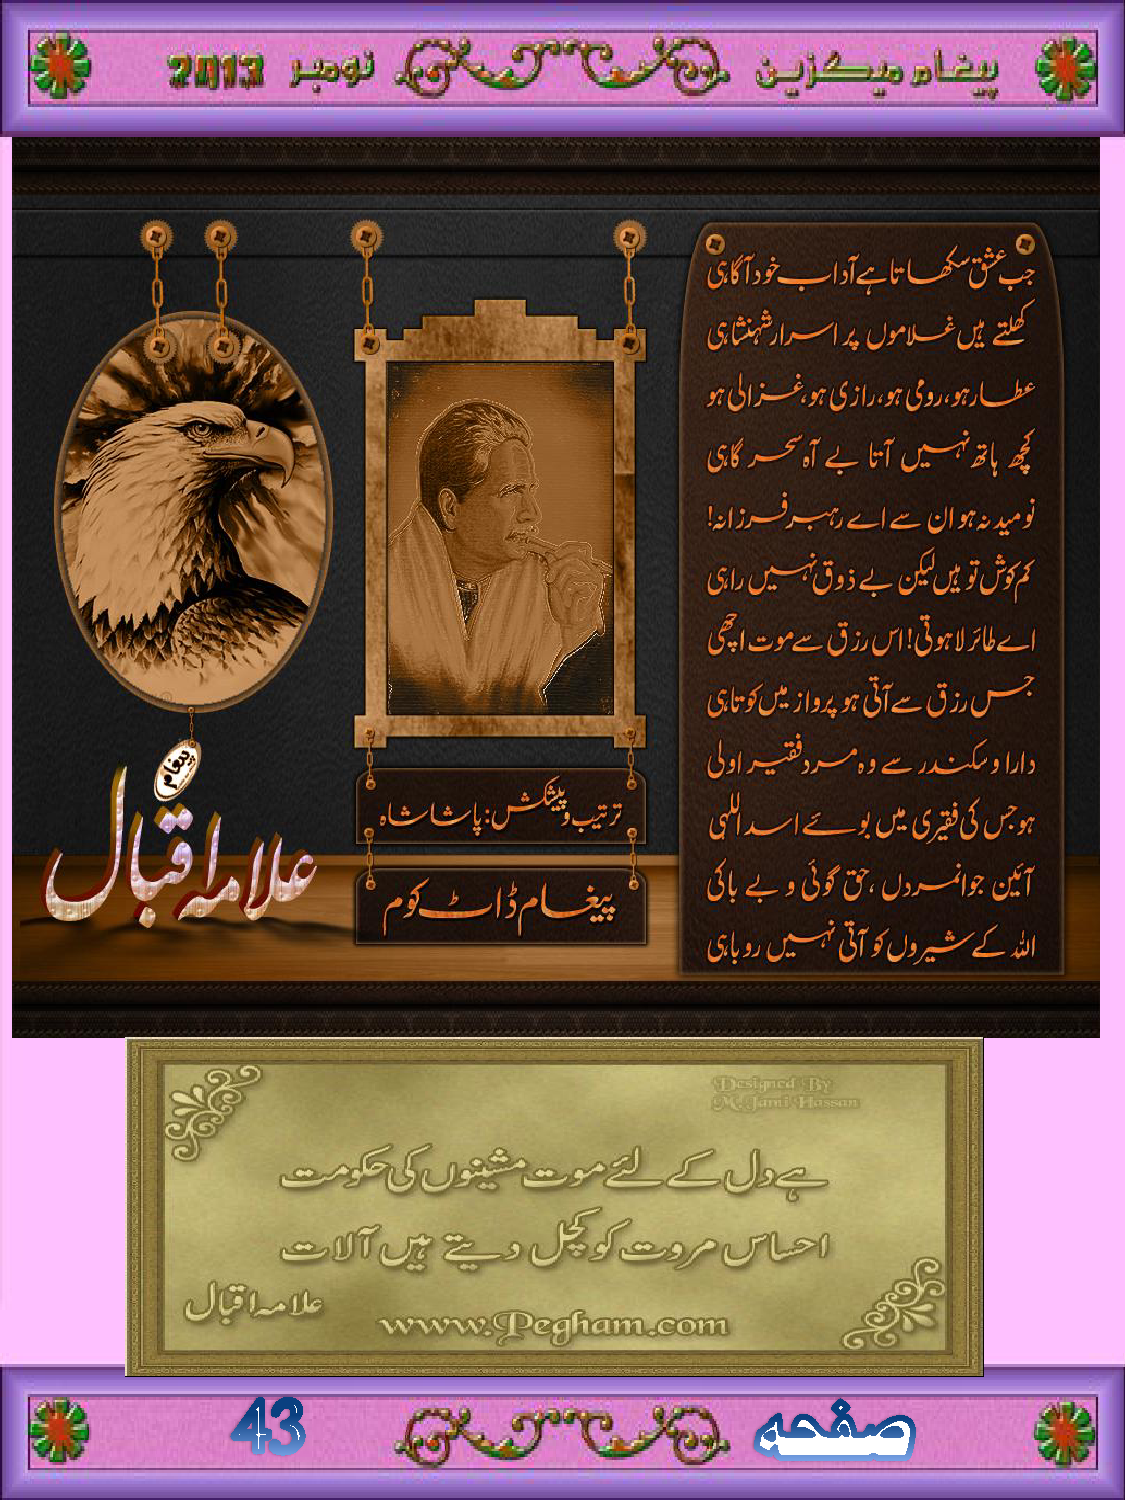 پیغام میگزین نومبر 2013
جب عشق سکھاتا ہے آداب خود آگاہی
کھلتے ہیں غلاموں پر اسرار شہنشاہی
عطار ہو، رومی ہو، رازی ہو، غزالی ہو
کچھ ہاتھ نہیں آتا بے آہ سحر گاہی
نومید نہ ہو ان سے اے رہبر فرزانہ!
کم کوش تو ہیں لیکن بے ذوق نہیں راہی
اے طائر لاہوتی! اس رزق سے موت اچھی
جس رزق سے آتی ہو پرواز میں کوتاہی
دارا و سکندر سے وہ مرد فقیر اولی
ہو جس کی فقیری میں بوئے اسد اللہی
آئین جوانمردں ،حق گوئی و بے باکی
اللہ کے شیروں کو آتی نہیں روباہی
پیغام
علامہ اقبال
ترتیب و پیشکش: پاشا شاہ
پیغام ڈاٹ کوم
Designed By
M. Jami Hassan
ہے دل کے لئے موت مشینوں کی حکومت
احساس مروت کو کچل دیتے ہیں آلات
علامہ اقبال
www.Pegham.com
صفحہ 43